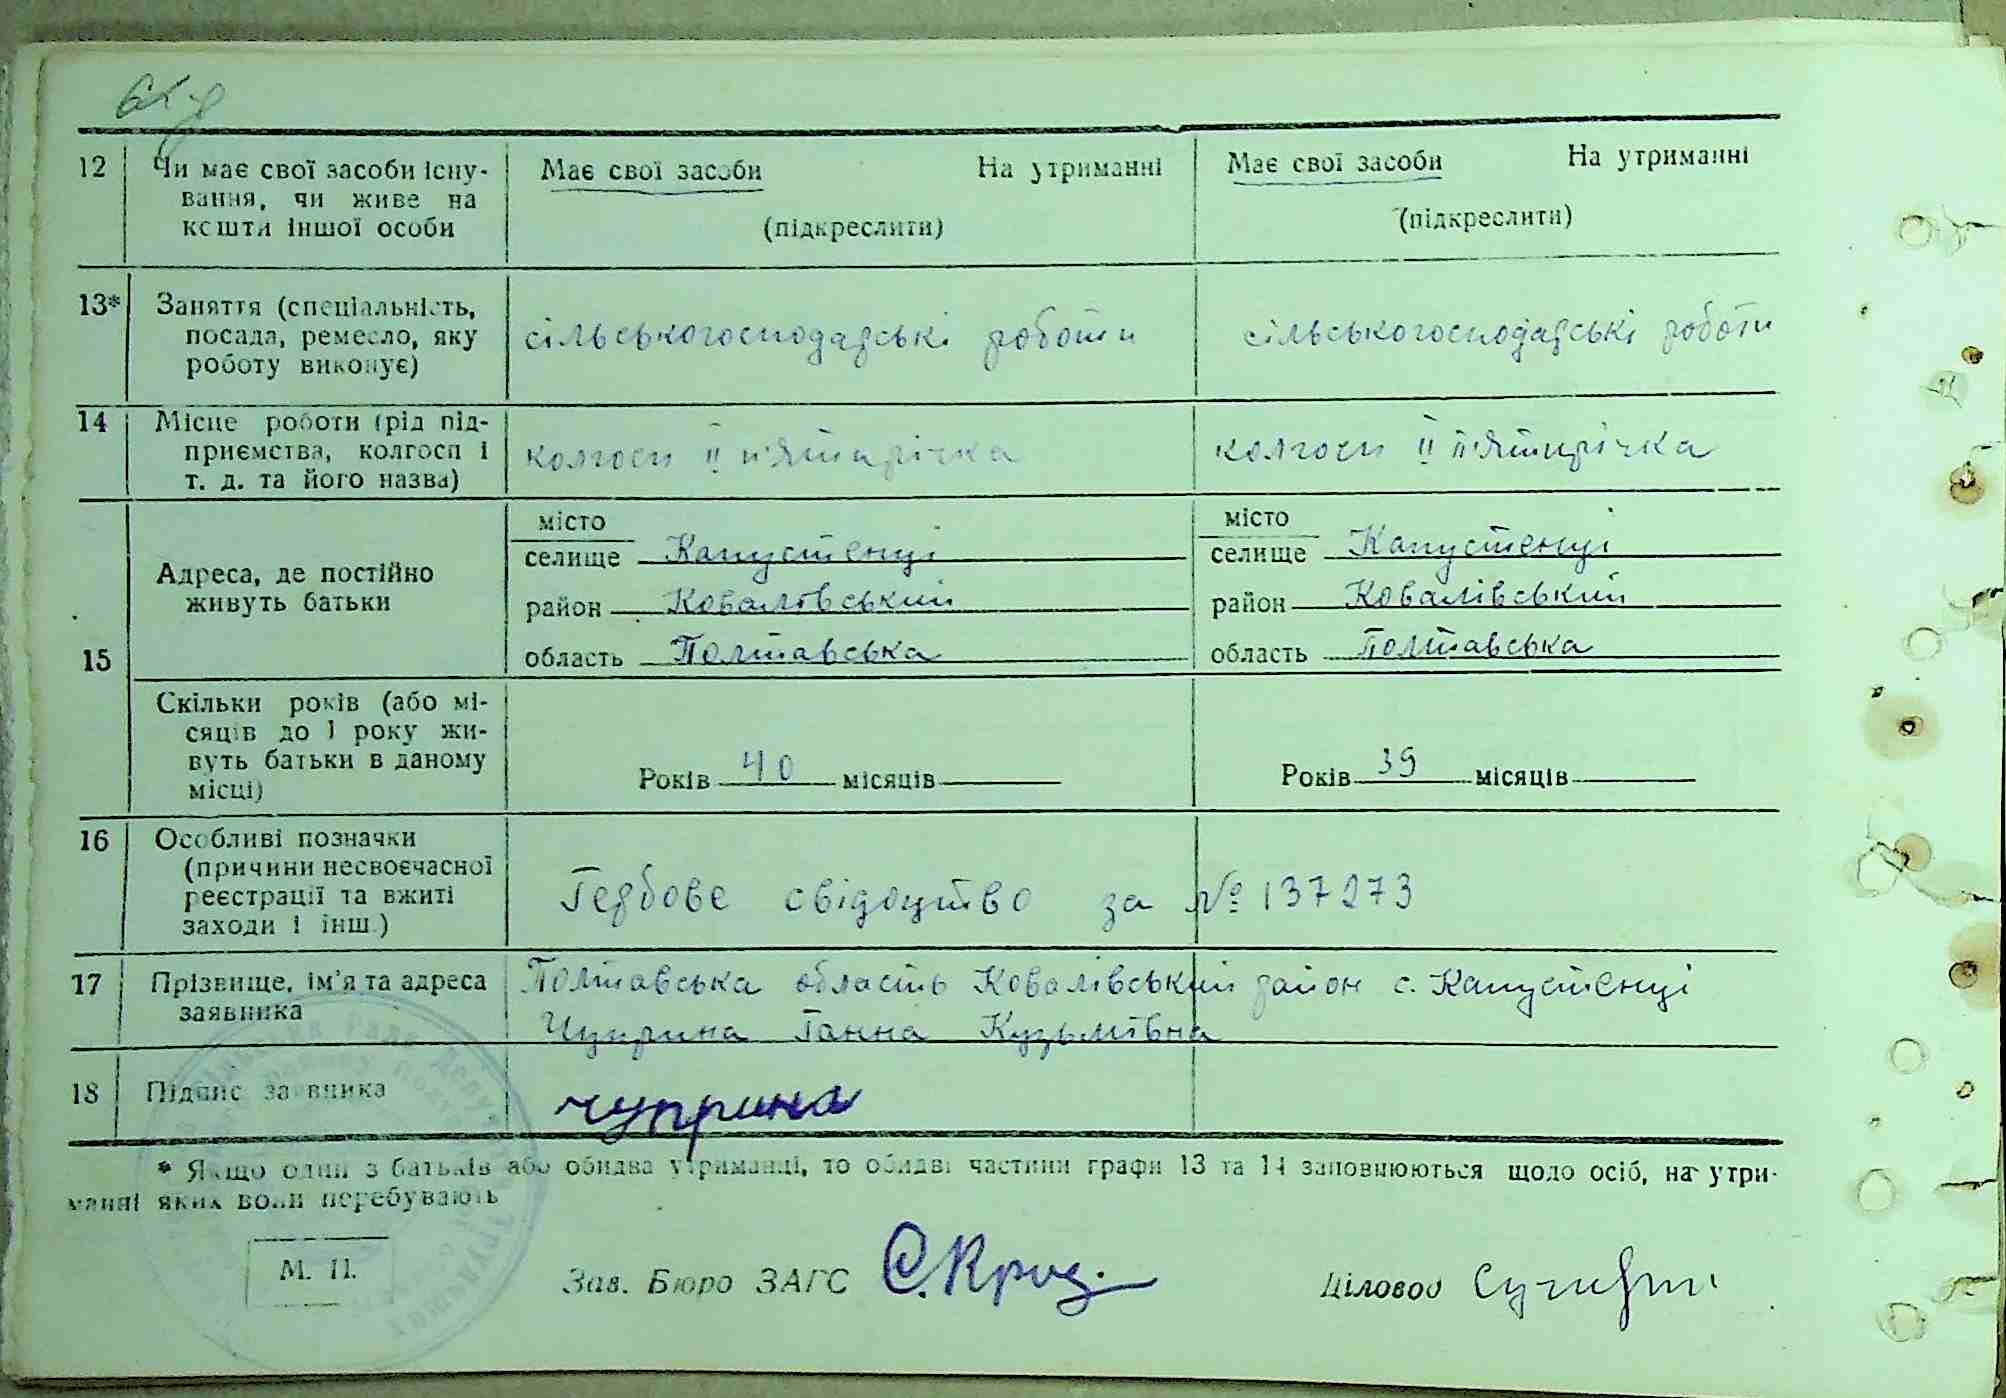 12 Чи має свої засоби існу- Має свої засоби На утриманні Має свої засоби На утриманні
вання, чи живе на
кошти іншої особи (підкреслити) (підкреслити)
13* Заняття (спеціальність,
посада, ремесло, яку сільськогосподарські роботи сільськогосподарські роботи
роботу виконує)
14 Місце роботи (рід під-
приємства, колгосп і колгосп ІІ п'ятирічка колгосп ІІ п'ятирічка
т. д. та його назва)
місто місто
селище Капустенці селище Капустенці
Адреса, де постійно
живуть батьки район Ковалівський район Ковалівський
15 область Полтавська область Полтавська
Скільки років (або мі-
сяців до 1 року жи-
вуть батьки в даному
місці) Років 40 місяців Років 39 місяців
16 Особливі позначки
(причини несвоєчасної
реєстрації та вжиті Гербове свідоцтво за № 137273
заходи і інш.)
17 Прізвище, ім'я та адреса Полтавська область Ковалівський район с. Капустенці
заявника Чуприна Ганна Кузьмівна
18 Підпис заявника чуприна
* Якщо один з батьків або обидва утриманці, то обидві частини графи 13 та 14 заповнюються щодо осіб, на утри-
манні яких вони перебувають
М. П.
Зав. Бюро ЗАГС Діловод